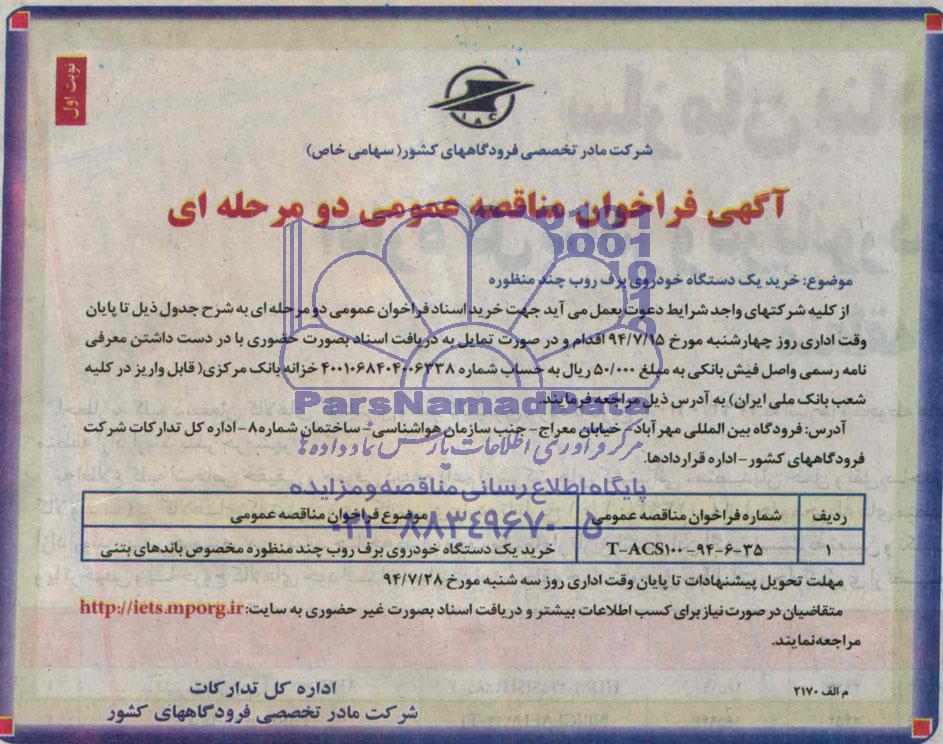 نوبت اول
IAC
شرکت مادر تخصصی فرودگاههای کشور( سهامی خاص)
آگهی فراخوان مناقصه عمومی دو مرحله ای
موضوع: خرید یک دستگاه خودروی برف روب چند منظوره
از کلیه شرکتهای واجد شرایط دعوت بعمل می آید جهت خرید اسناد فراخوان عمومی دو مرحله ای به شرح جدول ذیل تا پایان
وقت اداری روز چهارشنبه مورخ ۹۴/۷/۱۵ اقدام و در صورت تمایل به دریافت اسناد بصورت حضوری با در دست داشتن معرفی
نامه رسمی واصل فیش بانکی به مبلغ ۵۰/۰۰۰ ریال به حساب شماره ۴۰۰۱۰۶۸۴۰۴۰۰۶۳۳۸ خزانه بانک مرکزی( قابل واریز در کلیه
شعب بانک ملی ایران) به آدرس ذیل مراجعه فرمایند.
ParsNamadData
آدرس: فرودگاه بین المللی مهرآباد- خیابان معراج- جنب سازمان هواشناسی- ساختمان شماره ۸- اداره کل تدارکات شرکت
فرودگاههای کشور- اداره قراردادها.
مرکز فرآوری اطلاعات پارس نماد داده ها
پایگاه اطلاع رسانی مناقصه و مزایده
ردیف شماره فراخوان مناقصه عمومی موضوع فراخوان مناقصه عمومی
۰۲۱-۸۸۳۴۹۶۷۰-۵
۱ T-ACS۱۰۰-۹۴-۶-۳۵ خرید یک دستگاه خودروی برف روب چند منظوره مخصوص باندهای بتنی
مهلت تحویل پیشنهادات تا پایان وقت اداری روز سه شنبه مورخ ۹۴/۷/۲۸
متقاضیان در صورت نیاز برای کسب اطلاعات بیشتر و دریافت اسناد بصورت غیر حضوری به سایت: http://iets.mporg.ir
مراجعه نمایند.
م الف ۲۱۷۰
اداره کل تدارکات
شرکت مادر تخصصی فرودگاههای کشور